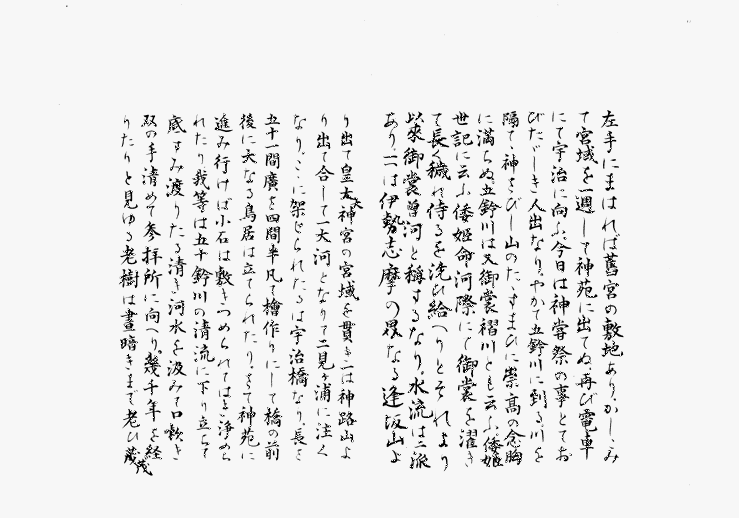 左手にまはれば舊宮の敷地あり、かしこみ
て宮域を一週して神苑に出てぬ、再び電車
にて宇治に向ふ、今日は神甞祭の事とてお
びたゞしき人出なり、やがて五鈴川に到る、川を
隔てゝ神さびし山のたゝずまひに崇高の念胸
に満ちぬ、五鈴川は又御裳褶川とも云ふ、倭姫
世記に云ふ倭姫命河際にて御裳を濯き
て長く穢れ侍るを洗ひ給へりとそれより
以来御裳曽河と稱するなり、水流は二派
あり、一は伊勢志摩の界なる逢坂山よ
り出て皇太神宮の宮域を貫き二は神路山よ
り出て合して一大河となりて二見ヶ浦に注く
なり、こゝに架しられたるは宇治橋なり、長さ
五十一間廣さ四間半凡て檜作りにして橋の前
後に大なる鳥居は立てられたり、さて神苑に
進み行けば小石は敷きつめられてはき浄めら
れたり、我等は五十鈴川の清流に下り立ちて
底すみ渡りたる清き河水を汲みて口嗽き
双の手清めて参拝所に向へり、幾千年を経
りたりと見ゆる老樹は晝暗きまで老ひ茂